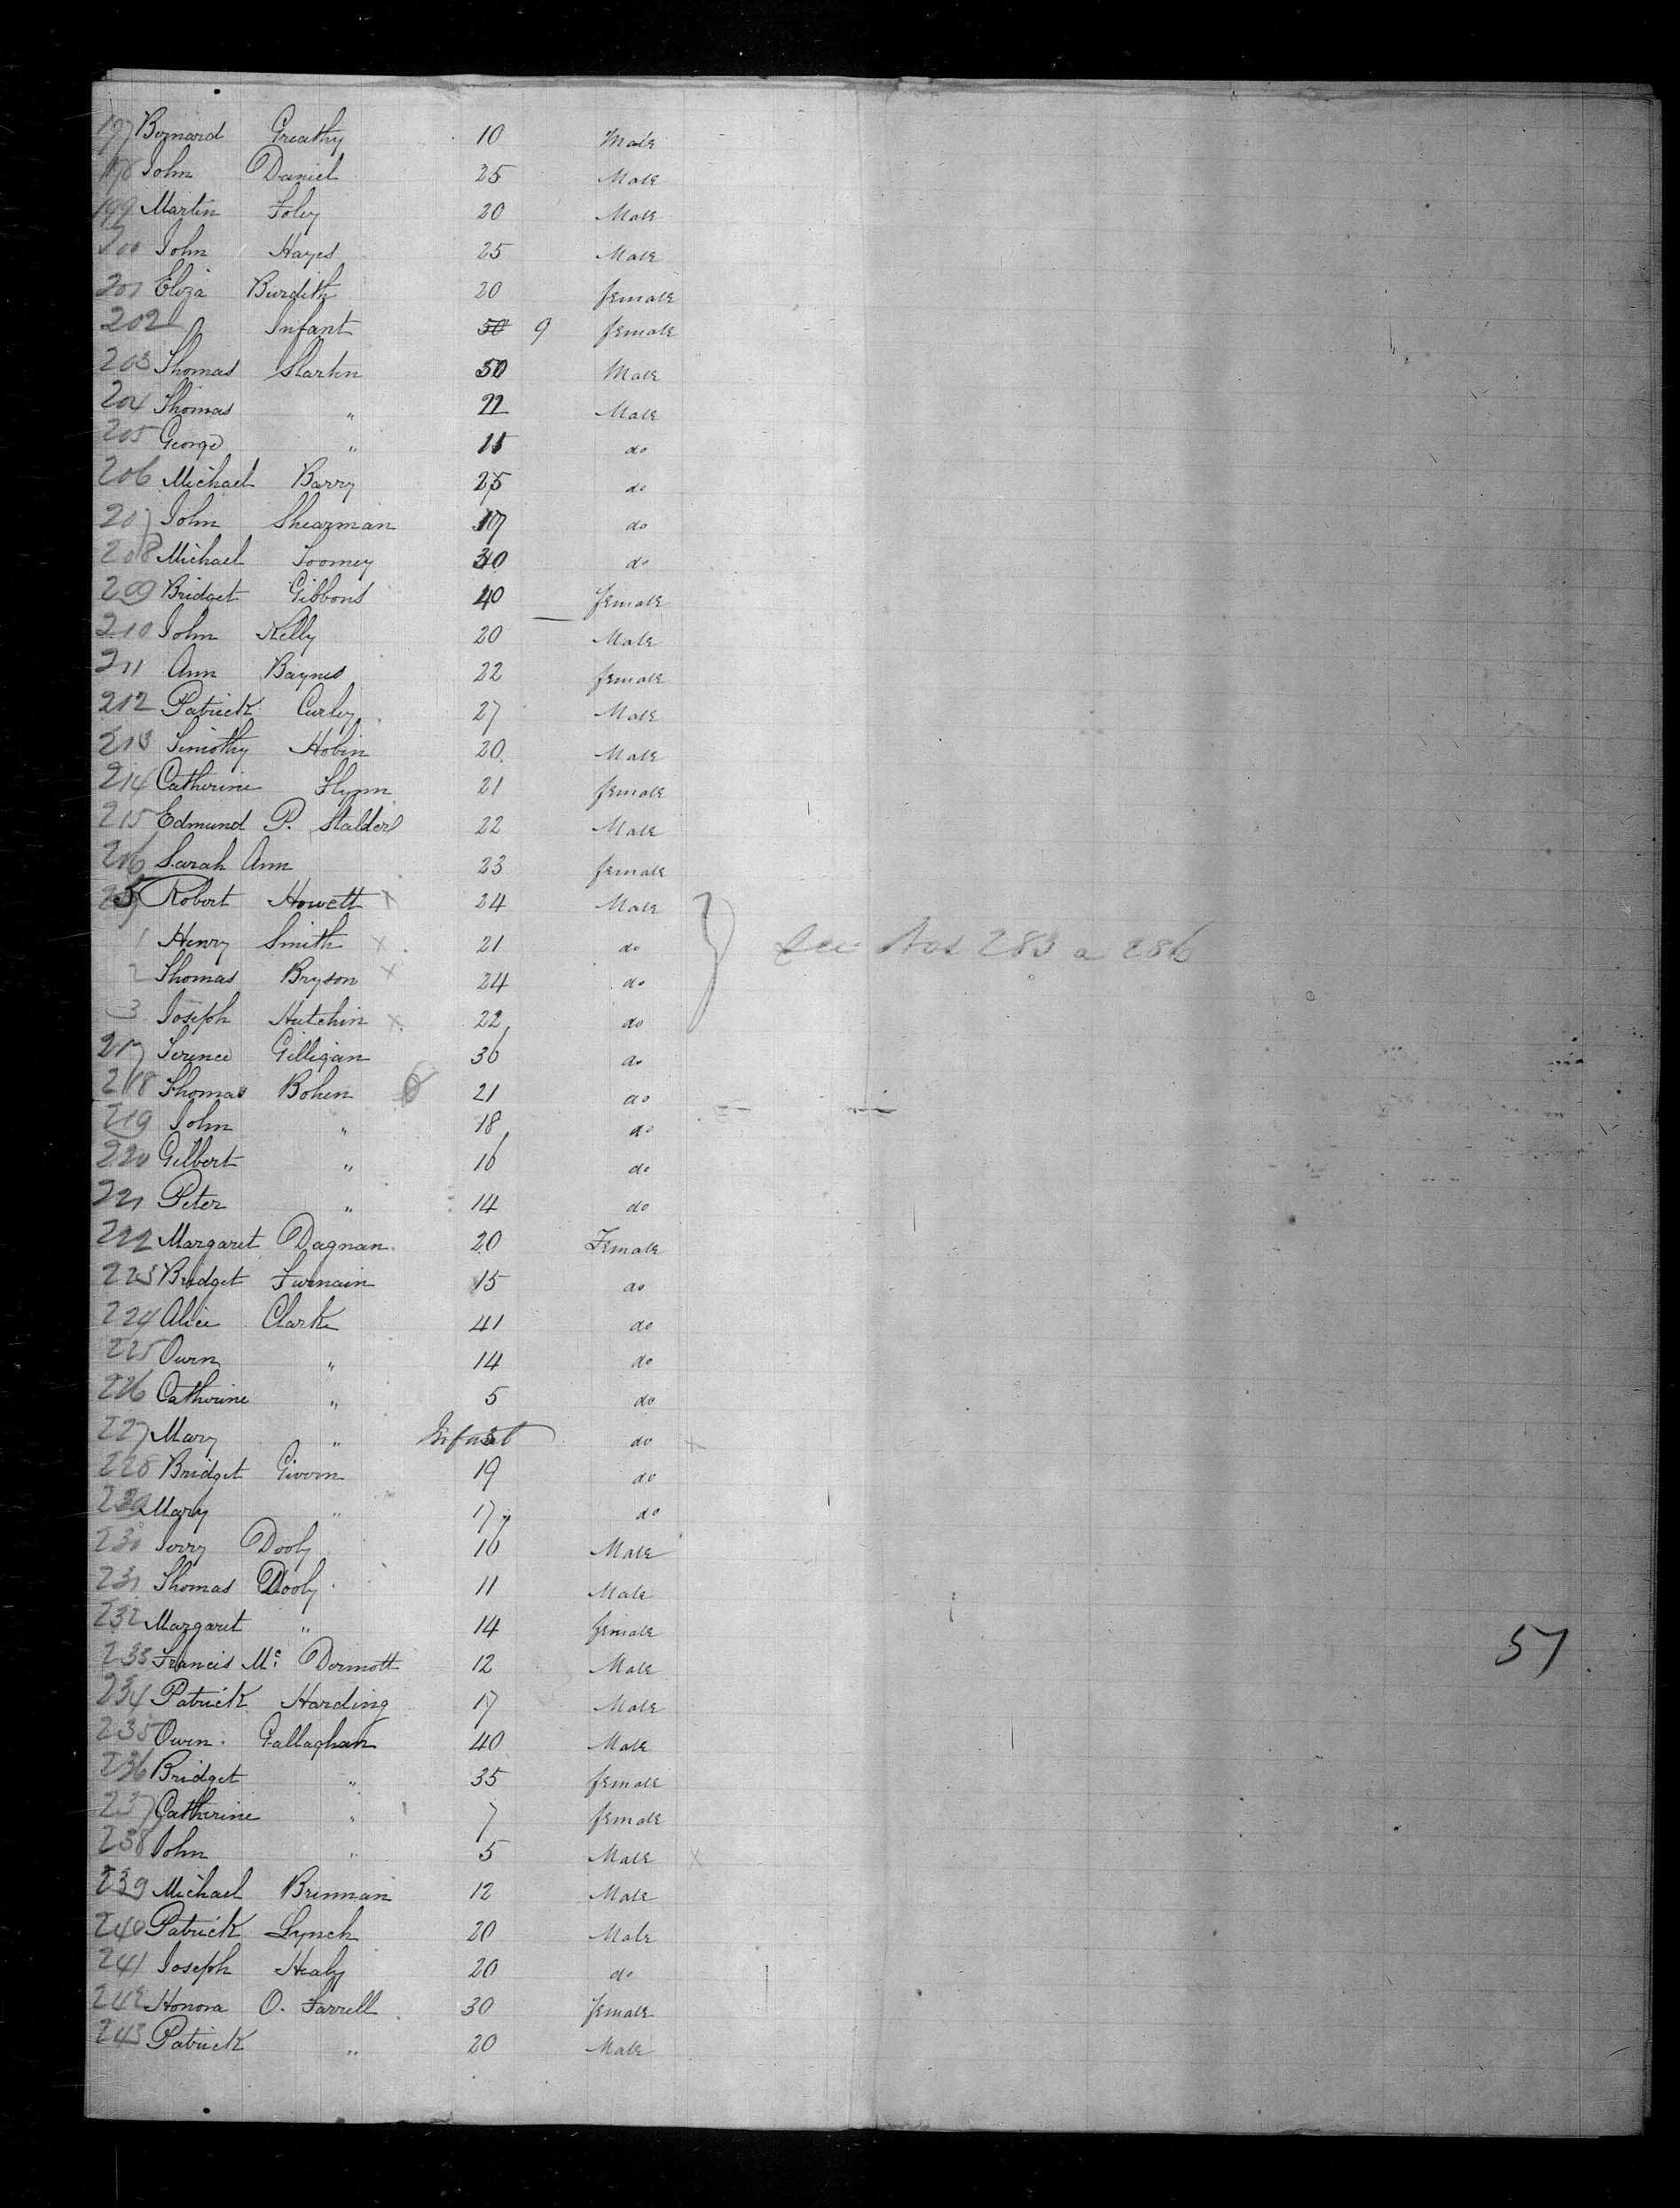 197 Bernard Greathy 10 Male
198 John Daniel 25 Male
199 Martin Foley 20 Male
200 John Hayes 25 Male
201 Eliza Burdith 20 female
202 " Infant 50 9 female
203 Thomas Slartin 50 Male
204 Thomas " 22 Male
205 George " 15 do
206 Michael Barry 25 do
207 John Shearman 19 do
208 Michael Toomey 30 do
209 Bridget Gibbons 40 female
210 John Kelly 20 Male
211 Ann Baynes 22 female
212 Patrick Curley 27 Male
213 Timothy Hobin 20 Male
214 Catherine Flynn 21 female
215 Edmund P. Stalder 22 Male
216 Sarah Ann 23 female
5 Robert Howett x 24 Male
1 Henry Smith x 21 do See Nos 283 a 286
2 Thomas Bryson x 24 do
3 Joseph Hutchin x 22 do
217 Terence Gilligan 36 do
218 Thomas Bohen 21 do
219 John " 18 do
220 Gilbert " 16 do
221 Peter " 14 do
222 Margaret Dagnan 20 Female
223 Bridget Furnain 15 do
224 Alice Clark 41 do
225 Owen " 14 do
226 Catherine " 5 do
227 Mary " Infant do x
228 Bridget Givern 19 do
229 Mary " 17 do
230 Jerry Dooly 16 Male
231 Thomas Dooly 11 Male
232 Margaret " 14 female
233 Francis Mc Dermott 12 Male
57
234 Patrick Harding 17 Male
235 Owen Gallaghan 40 Male
236 Bridget " 35 female
237 Catherine " 7 female
238 John " 5 Male x
239 Michael Brennan 12 Male
240 Patrick Lynch 20 Male
241 Joseph Healy 20 do
242 Honora O. Farrell 30 female
243 Patrick " 20 Male